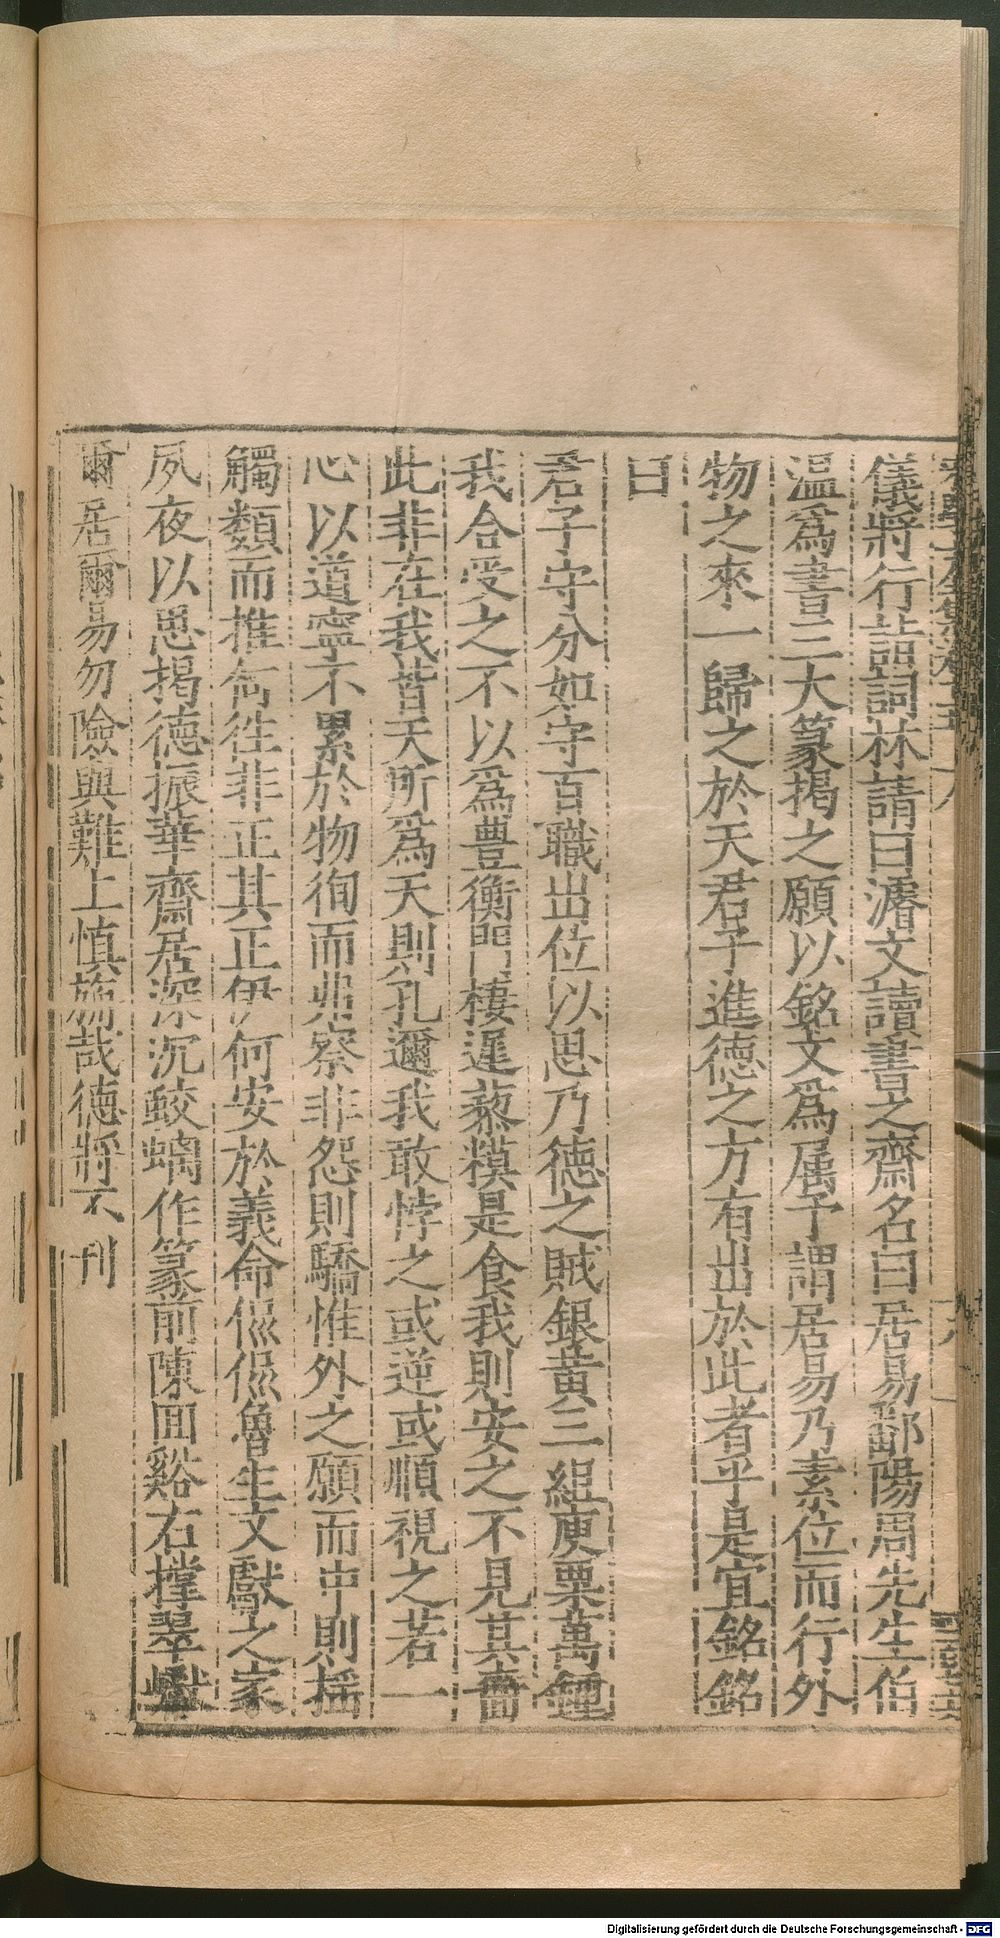 儀將行詣詞林請曰濬文讀書之齋名曰居易鄱陽周先生伯
溫爲書三大篆揭之願以銘文爲属予謂居易乃素位而行外
物之來一歸之於天君子進德之方有出於此者乎是宜銘銘
曰
君子守分如守百職出位以思乃德之賊銀黃三組庾粟萬鍾
我合受之不以爲豊衡門棲遲藜糗是食我則安之不見其嗇
此非在我皆天所爲天則孔邇我敢悖之或逆或順視之若一
心以道寧不累於物徇而弗察非怨則驕惟外之願而中則揺
觸類而推奚徃非正其正伊何安於義命傫傫魯生文獻之家
夙夜以思揭德振華齋居深沉蛟螭作篆前陳囬谿右撑翠巘
爾居爾易勿險與難上慎旃哉德將不刊
Digitalisierung gefördert durch die Deutsche Forschungsgemeinschaft - DFG